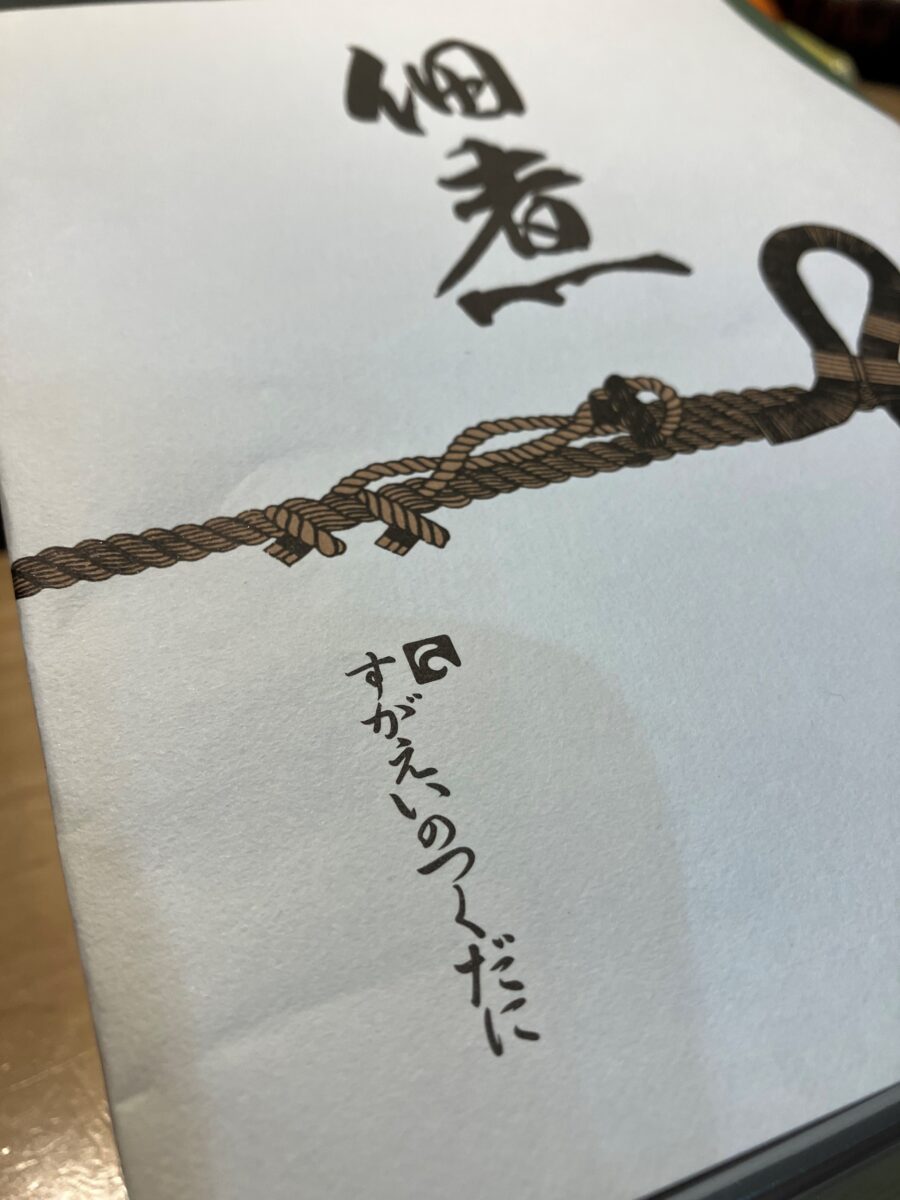 佃煮
すがえいのつくだに